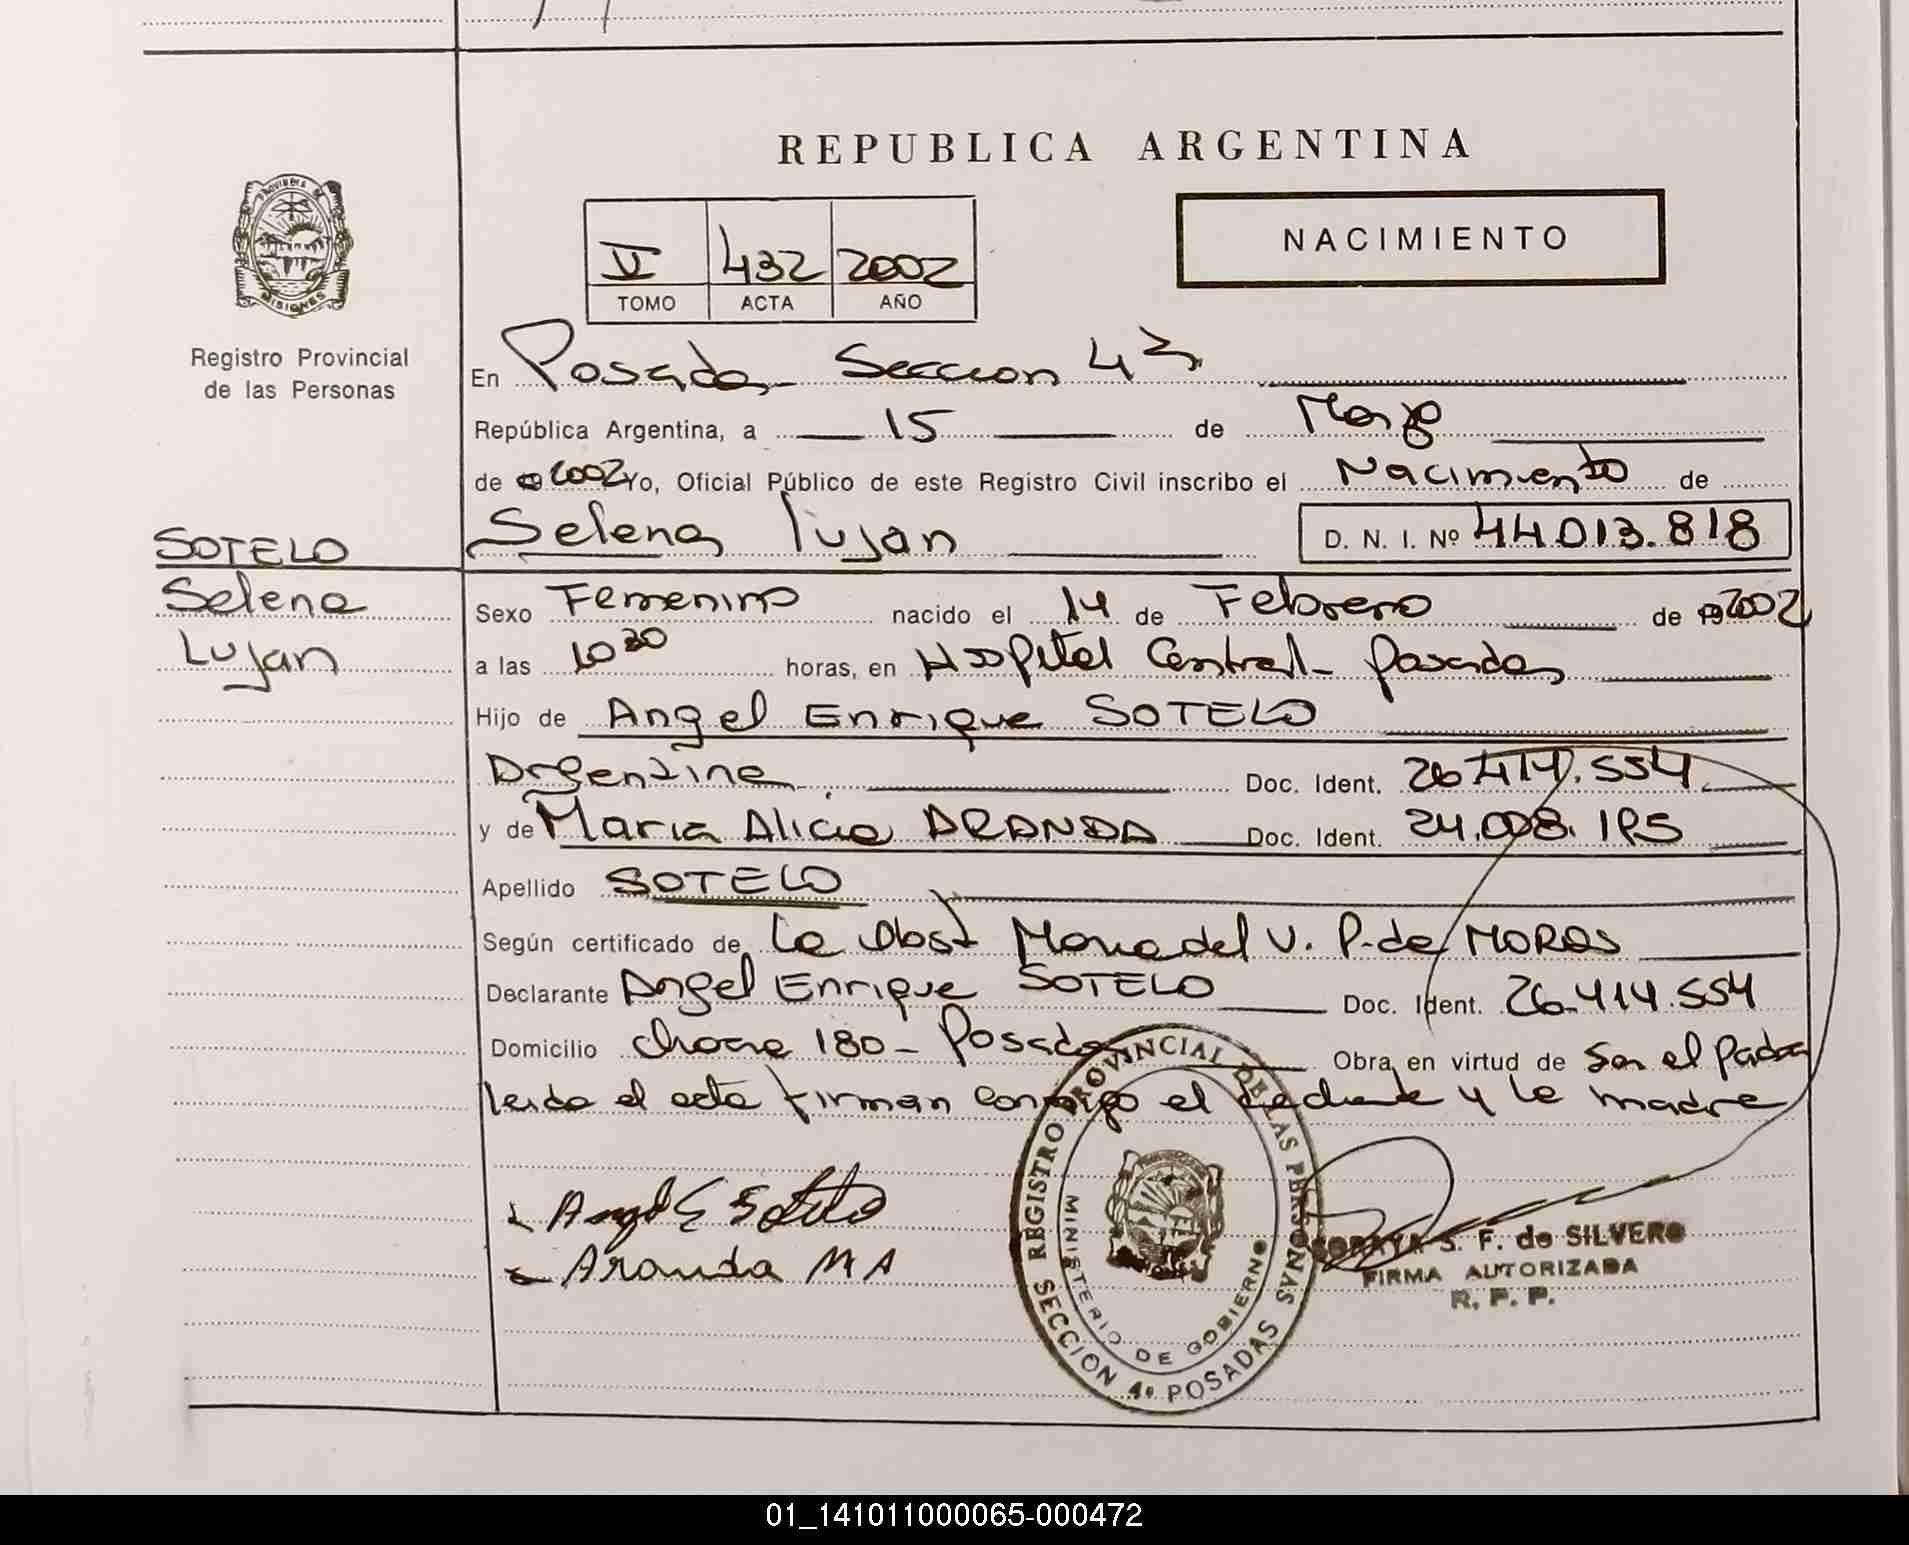 REPUBLICA ARGENTINA
PROVINCIA DE MISIONES
NACIMIENTO
V 432 2002
TOMO ACTA AÑO
Registro Provincial
de las Personas
En Posadas Seccion 4ª
República Argentina, a 15 de Marzo
de 2002 Yo, Oficial Público de este Registro Civil inscribo el Nacimiento de
Selena lujan D. N. I. Nº 44.013.818
SOTELO
Selena
Lujan
Sexo Femenino nacido el 14 de Febrero de 2002
a las 10 30 horas, en Hospital Central - posadas
Hijo de Angel Enrique SOTELO
Argentina Doc. Ident. 26.414.554
y de Maria Alicia ARANDA Doc. Ident. 24.008.195
Apellido SOTELO
Según certificado de La Obst Maria del V. P. de MORAS
Declarante Angel Enrique SOTELO Doc. Ident. 26.414.554
Domicilio 180 - Posadas Obra en virtud de Ser el padre
leida el acta firman conmigo el declarante y la madre
Angel E Sotelo
Aranda M A
REGISTRO PROVINCIAL DE LAS PERSONAS
MINISTERIO DE GOBIERNO
SECCION 4ª POSADAS
SORAYA S. F. de SILVERO
FIRMA AUTORIZADA
R. P. P.
01_141011000065-000472